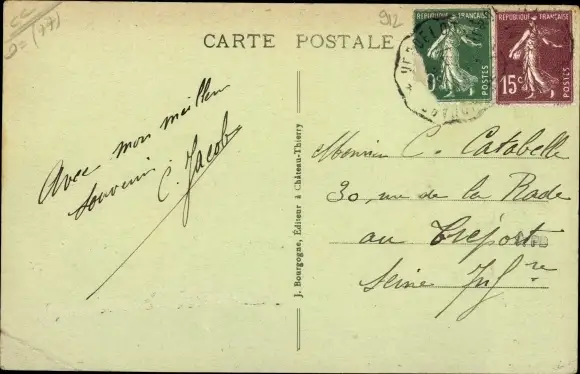 CC
D = (77)
912
CARTE POSTALE
RÉPUBLIQUE FRANÇAISE
0c
POSTES
RÉPUBLIQUE FRANÇAISE
15c
POSTES
Avec mon meilleur
souvenir
C. Jacob
J. Bourgogne, Éditeur à Château-Thierry
Monsieur C. Catabelle
30, rue de la Rade
au Tréport
Seine Infre